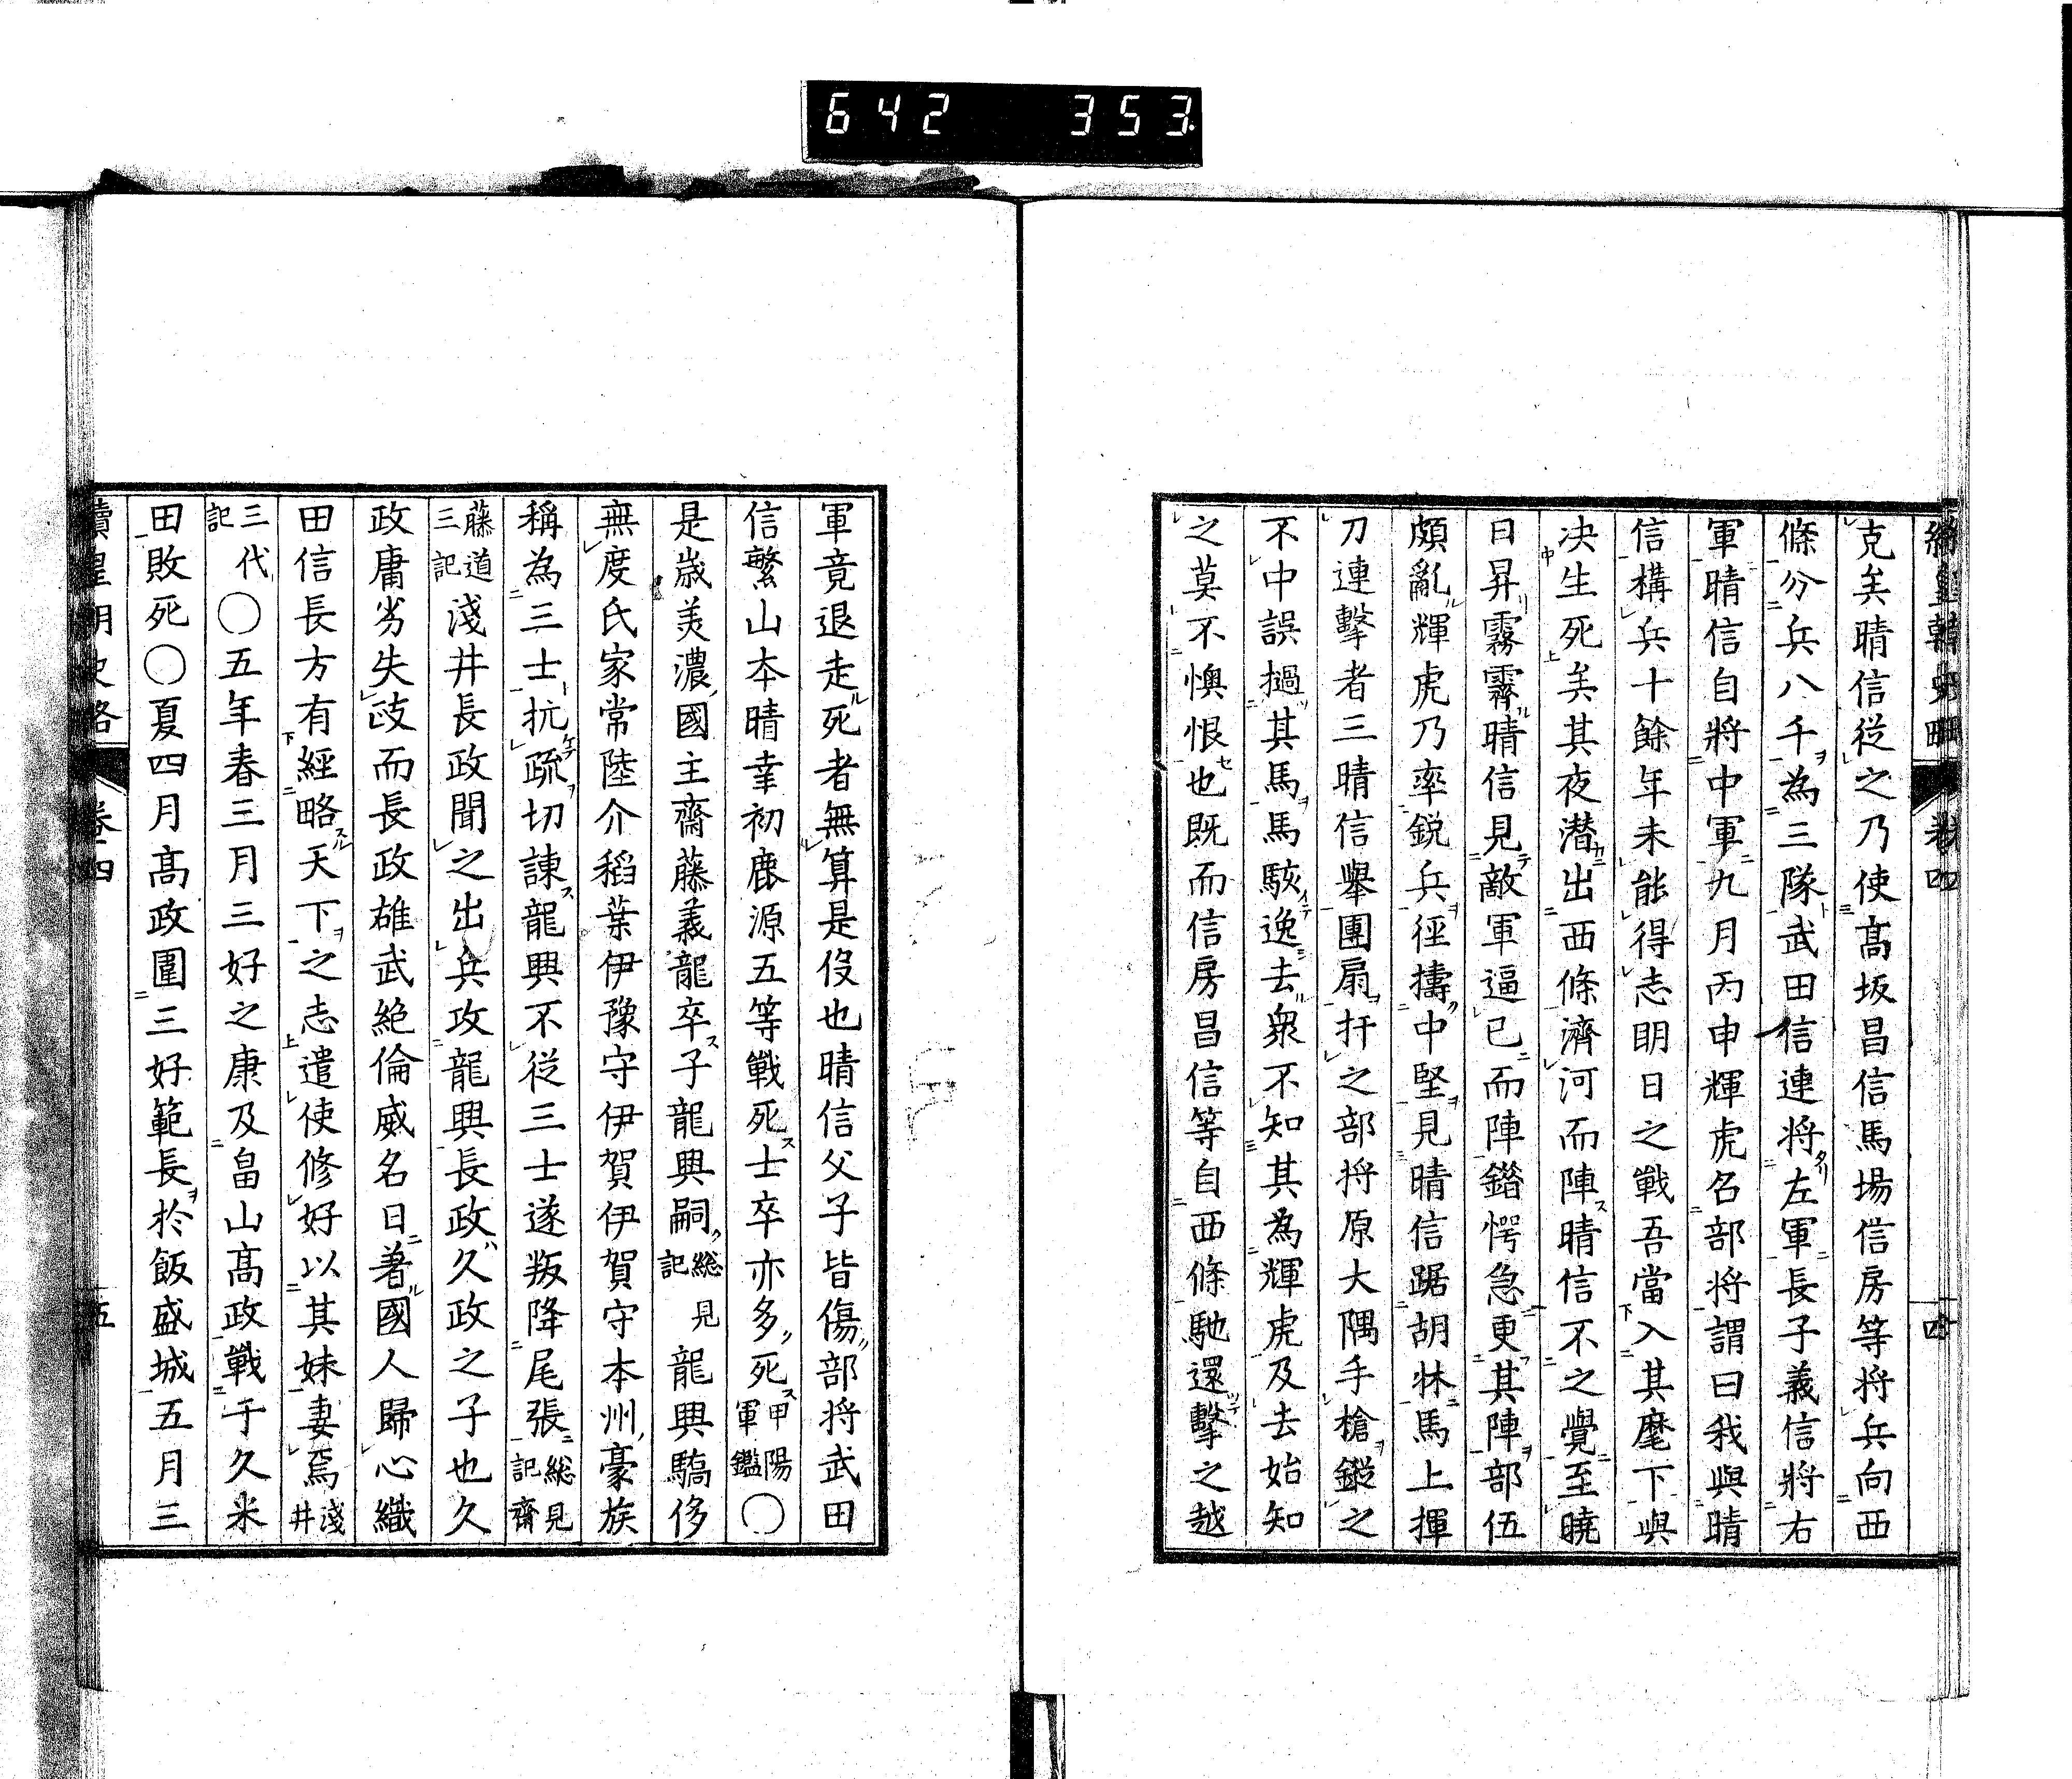 642 353
續皇朝史畧 卷四 四
克矣晴信従之乃使髙坂昌信馬塲信房等将兵向西
條分兵八千為三隊武田信連将左軍長子義信將右
軍晴信自將中軍九月丙申輝虎名部将謂曰我與晴
信構兵十餘年未能得志明日之戰吾當入其麾下與
决生死矣其夜潜出西條濟河而陣晴信不之覺至曉
日昇霧霽晴信見敵軍逼已而陣鍇愕急更其陣部伍
頗亂輝虎乃率鋭兵徑擣中堅見晴信踞胡牀馬上揮
刀連擊者三晴信舉團扇扞之部将原大隅手槍鏦之
不中誤撾其馬馬駭逸去衆不知其為輝虎及去始知
之莫不懊恨也既而信房昌信等自西條馳還擊之越
軍竟退走死者無算是伇也晴信父子皆傷部将武田
信繁山本晴幸初鹿源五等戰死士卒亦多死甲陽軍鑑〇
是歳美濃國主齋藤義龍卒子龍興嗣総見記龍興驕侈
無度氏家常陸介稻葉伊豫守伊賀伊賀守本州豪族
稱為三士抗疏切諫龍興不従三士遂叛降尾張総見記齋
藤道三記淺井長政聞之出兵攻龍興長政久政之子也久
政庸劣失政而長政雄武絶倫威名日著國人歸心織
田信長方有經略天下之志遣使修好以其妹妻焉淺井
三代記〇五年春三月三好之康及畠山髙政戰于久米
田敗死〇夏四月髙政圍三好範長於飯盛城五月三
續皇朝史略 卷四 五